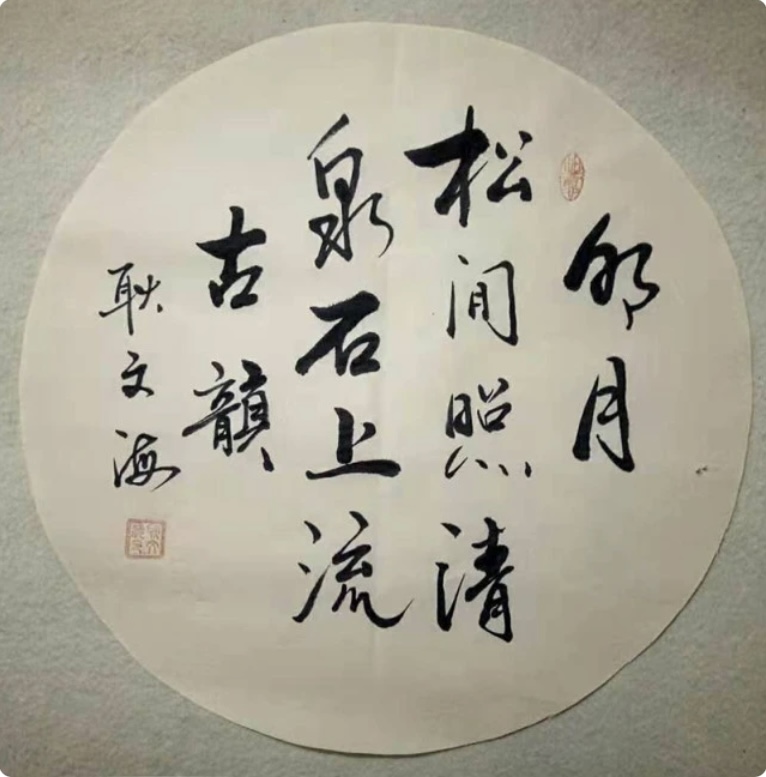 明月
松间照清
泉石上流
古韻
耿文海